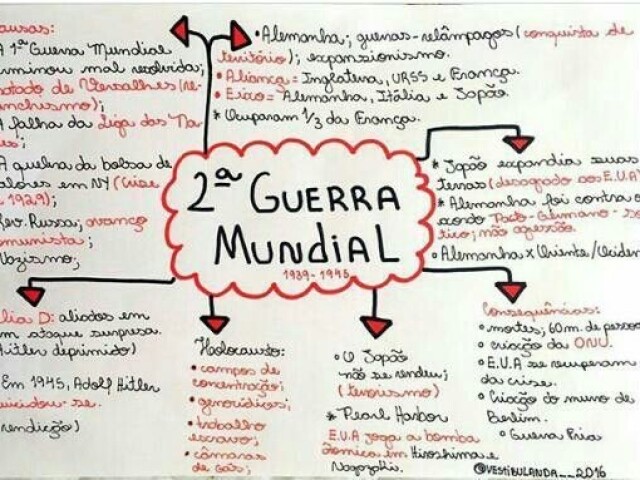 ausas:
A 1ª Guerra Mundial
erminou mal resolvida;
ratado de Versalhes (re-
anchismo);
A falha da Liga das Na-
es;
A quebra da bolsa de
alores em NY (Crise
1929);
Rev. Russa; avanço
omunista;
Nazismo;
• Alemanha; guerras-relâmpagos (conquista de
território); expansionismo.
• Aliança = Inglaterra, URSS e França.
• Eixo = Alemanha, Itália e Japão.
* Ocuparam 1/3 da França.
* Japão expandia suas
terras (desagrado aos E.U.A)
* Alemanha foi contra o
acordo Pacto-Germano-so
tico; não agressão.
• Alemanha x Oriente/Ociden
2ª GUERRA
MUNDIAL
1939-1945
Dia D: aliados em
m ataque surpresa.
Hitler deprimido)
Em 1945, Adolf Hitler
uicidou-se.
rendição)
Holocausto:
• campos de
concentração;
• genocídios;
• trabalho
escravo;
• câmaras
de Gás;
• O Japão
não se rendeu;
(terrorismo)
* Pearl Harbor
E.U.A joga a bomba
atômica em Hiroshima e
Nagazaki.
Consequências:
• mortes; 60m. de pessoa
• criação da ONU.
• E.U.A se recuperam
da crise.
• Criação do muro de
Berlim.
• Guerra Fria
@VESTIBULANDA__2016